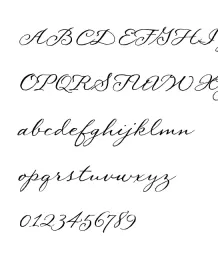 ABCDEFGHI
OPQRSTUVWX
abcdefghijklmn
opqrstuvwxyz
0123456789